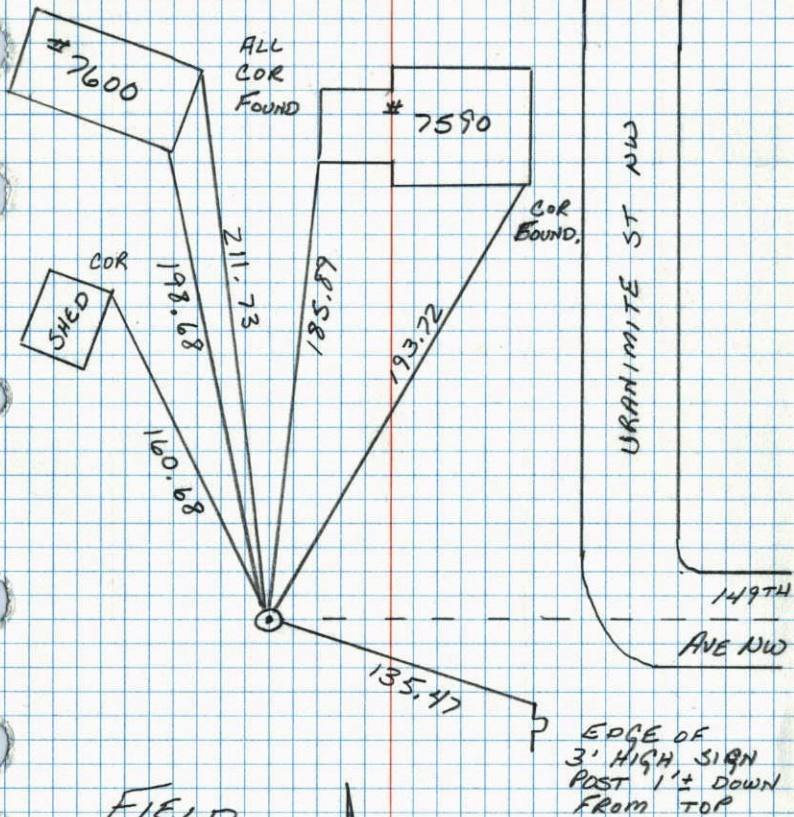 # 7600
ALL
COR
FOUND
# 7590
COR
FOUND.
URANIMITE ST NW
COR
SHED
198.68
211.73
185.89
193.72
160.68
149TH
AVE NW
135.47
EDGE OF
3' HIGH SIGN
POST 1'± DOWN
FROM TOP
FIELD